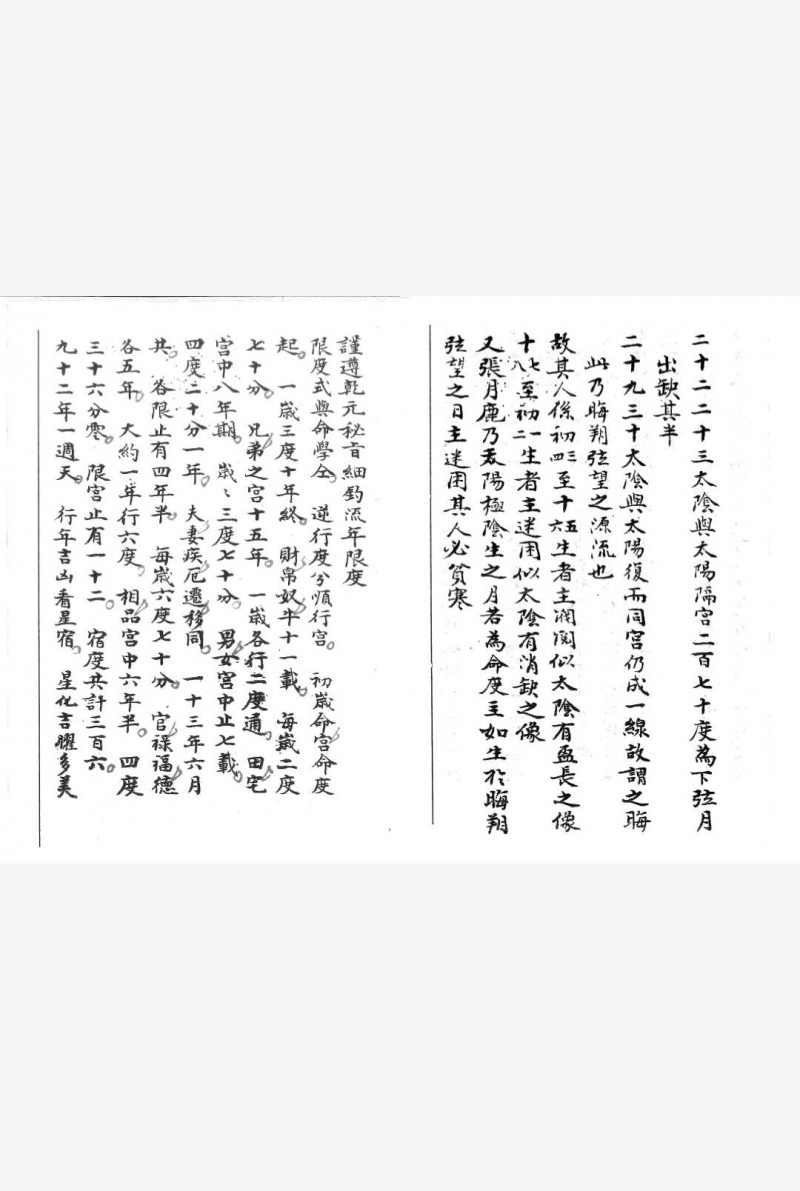 二十二二十三太陰與太陽隔宮二百七十度為下弦月
出缺其半
二十九三十太陰與太陽復而同宮仍成一線故謂之晦
此乃晦朔弦望之源流也
故其人係初三四至十五六生者主潤闊似太陰有盈長之像
十七八至初一二生者主迷困似太陰有消缺之像
又張月鹿乃太陽極陰生之月若為命度主如生於晦朔
弦望之日主迷困其人必貧寒
謹遵乾元秘旨細鈞流年限度
限度式與命學仝。逆行度分順行宮。初歲命宮命度
起。一歲三度十年終。財帛奴半十一載。每歲二度
七十分。兄弟之宮十五年。一歲各行二度通。田宅
宮中八年期。歲〻三度七十分。男女宮中止七載。
四度二十分一年。夫妻疾厄遷移同。一十三年六月
共。各限止有四年半。每歲六度七十分。官祿福德
各五年。大約一年行六度。相品宮中六年半。四度
三十六分零。限宮止有一十二。宿度共計三百六。
九十二年一週天。行年吉凶看星宿。星化吉曜多美